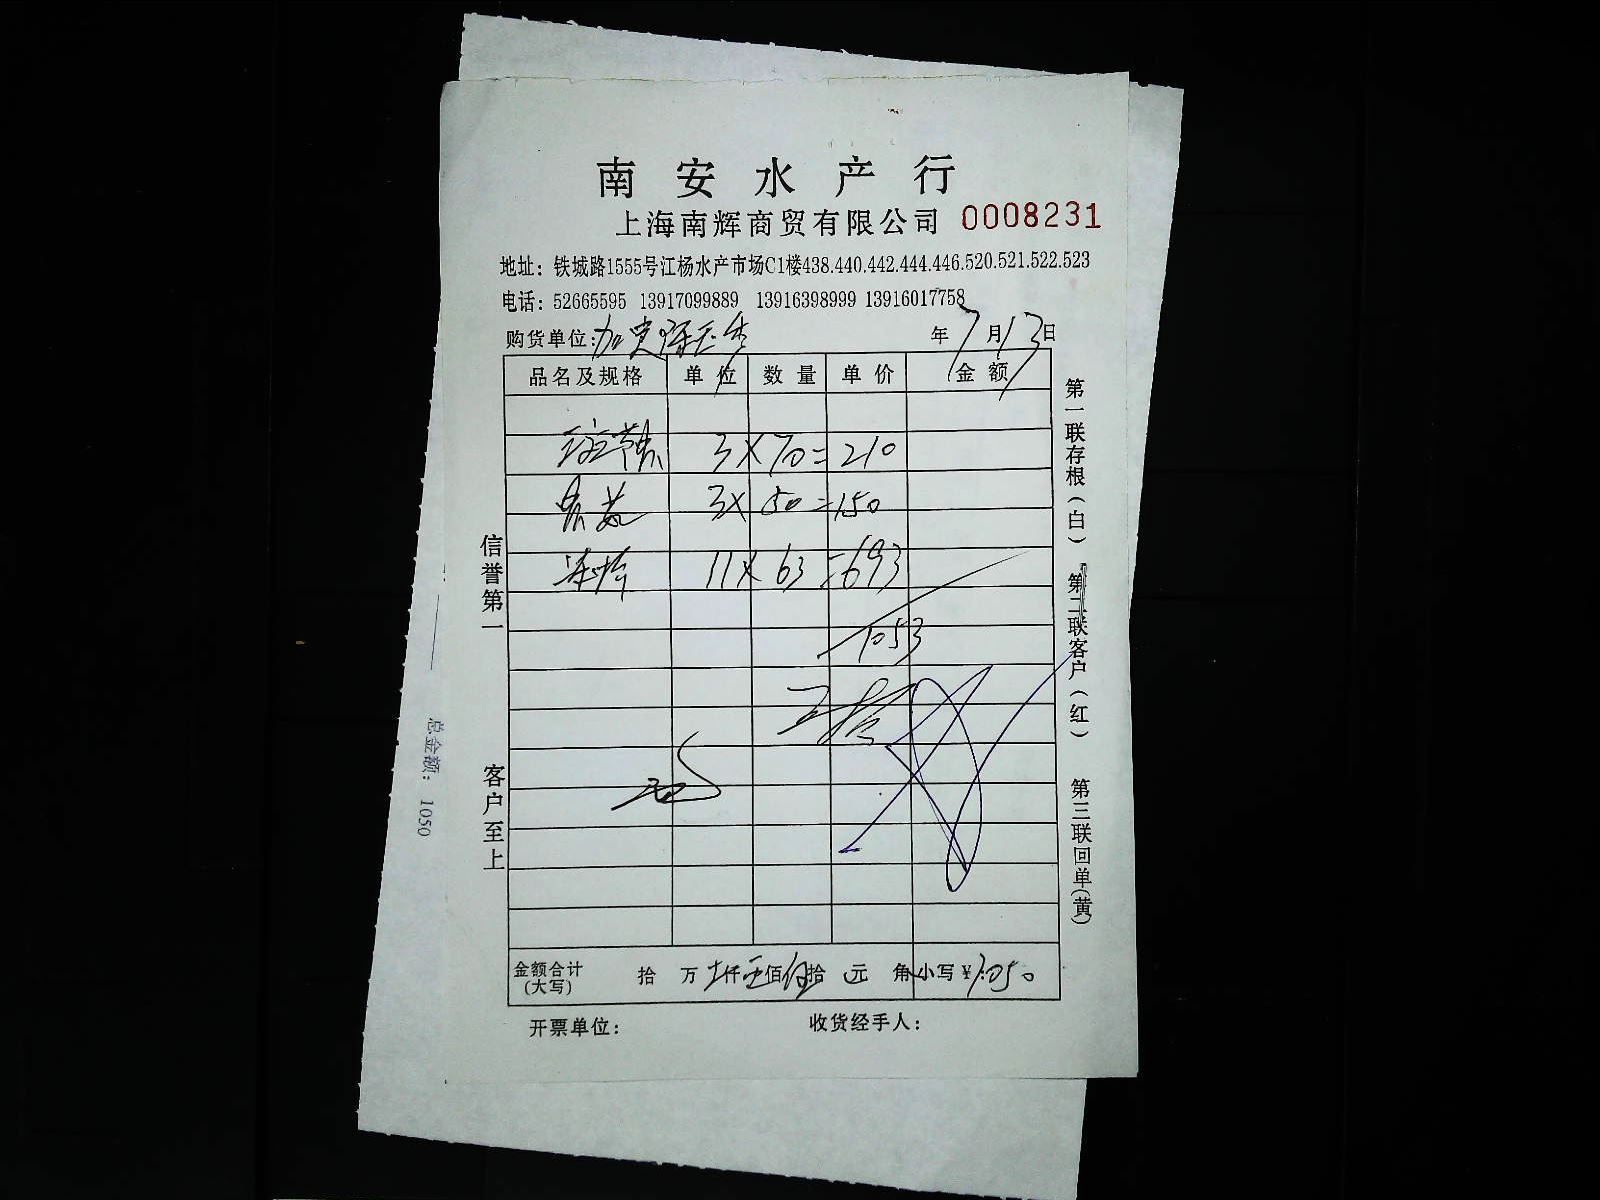 南安水产行
上海南辉商贸有限公司 0008231
地址：铁城路1555号江杨水产市场C1楼438.440.442.444.446.520.521.522.523
电话：52665595 13917099889 13916398999 13916017758
购货单位： 年7月13日
品名及规格 单位 数量 单价 金额
3×70=210
3×50=150
11×63=693
1053
金额合计（大写） 拾 万 仟 佰 拾 元 角 小写￥1050
开票单位： 收货经手人：
信誉第一
客户至上
第一联存根（白）
第二联客户（红）
第三联回单（黄）
总金额： 1050